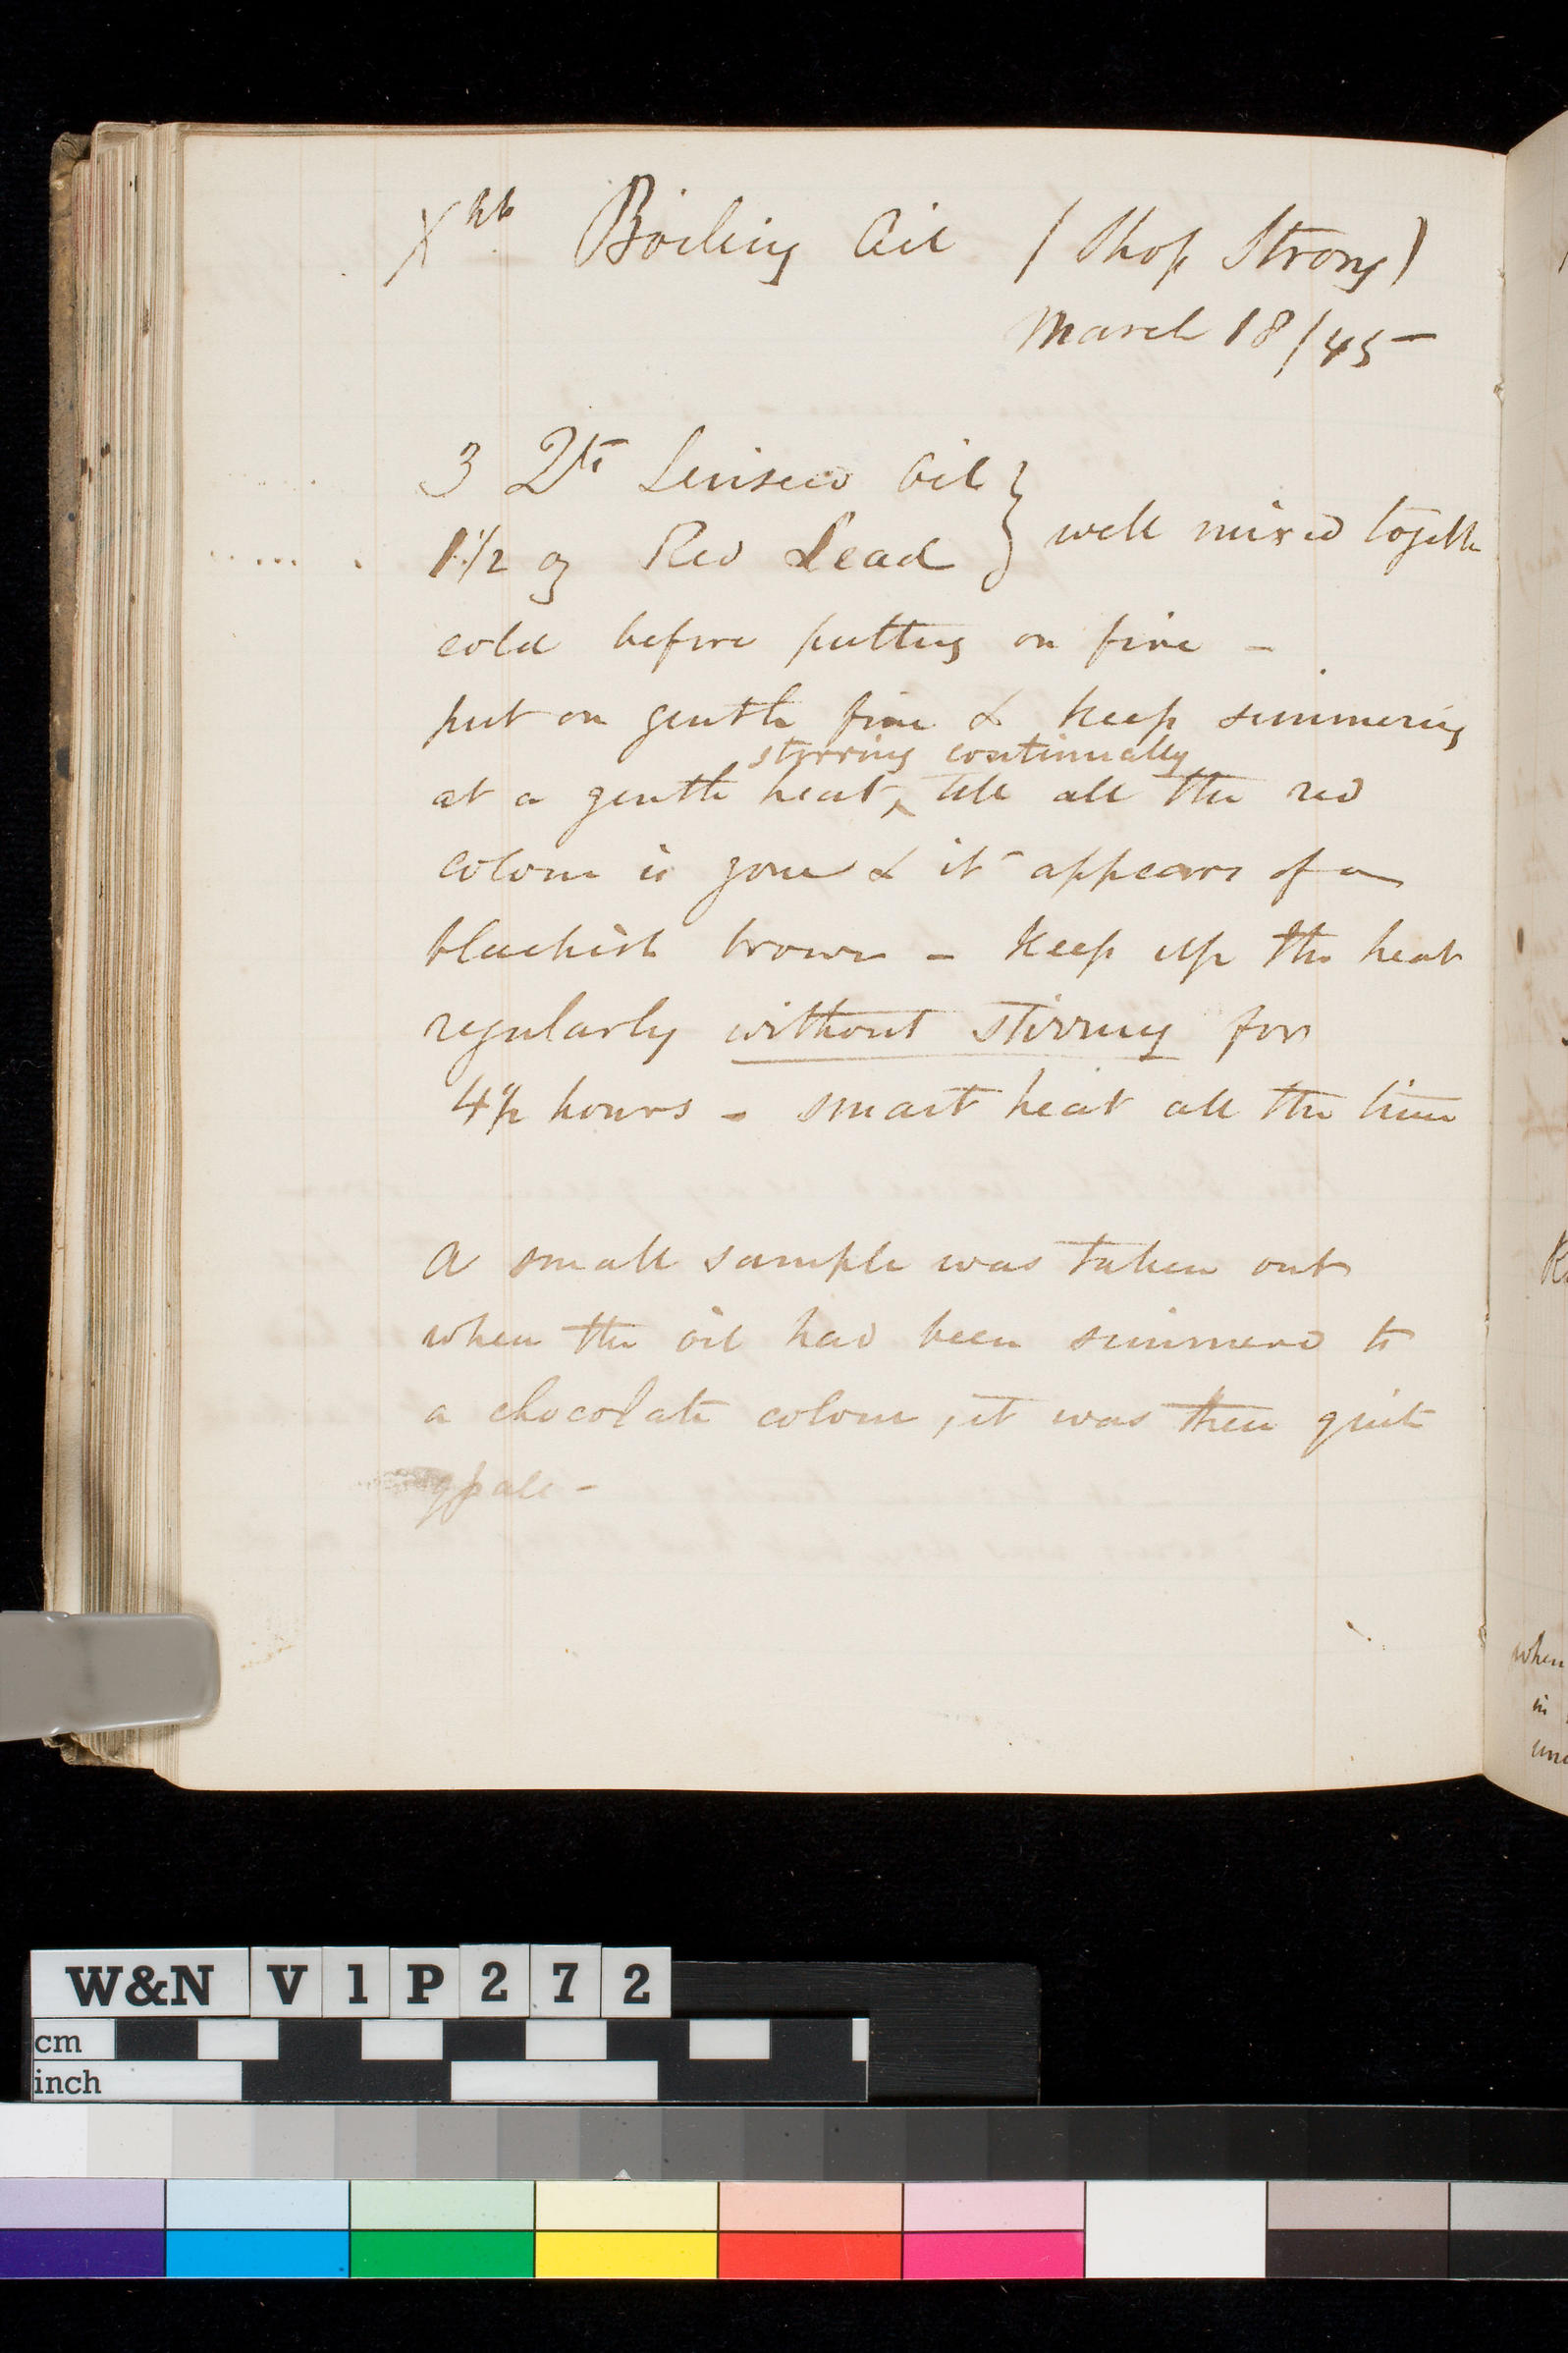 Xpt Boiling Oil (Shop Strong)
March 18/45
3 Qts Linseed Oil
1 1/2 oz Red Lead } well mixed togethr
cold before putting on fire -
put on gentle fire & keep simmering
stirring continually
at a gentle heat, ^ till all the red
colour is gone & it appears of a
blackish brown - keep up the heat
regularly without stirring for
4 1/2 hours - smart heat all the time
A small sample was taken out
when the oil had been simmered to
a chocolate colour, it was then quite
pale -
when
in
W&N V1P272
cm
inch